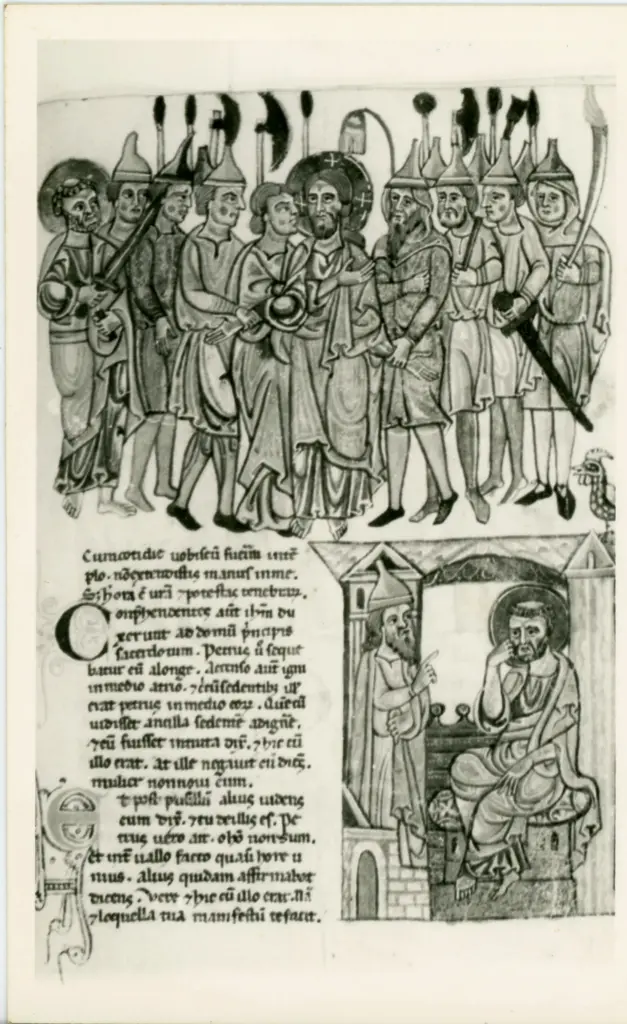 Cum cotidie uobiscū fuerim inte
plo. nō extendistis manus in me.
S; h̄ hora ē ur̄a ⁊ potestas tenebraꝝ.
Conp̄hendentes aūt ih̄m du
xerunt ad domū p̄ncipis
sacerdotum. Petrus ū seque
batur eū alonge. Accenso aūt igni
in medio atrio. ⁊ c̄cūsedentib;
erat petrus in medio eoꝝ. Quē cū
uidisset ancilla sedentē ad ignē.
⁊ eū fuisset intuita dix̄. ⁊ hic cū
illo erat. At ille negauit eū dicēs.
mulier non noui eum.
Et post pusillū alius uidens
eum dix̄. ⁊ tu de illis es. Pe
trus uero ait. o hō non sum.
Et int̄uallo facto quasi hore u
nius. alius quidam affirmabat
dicens. Vere ⁊ hic cū illo erat. Nā
⁊ loquella tua manifestū te facit.